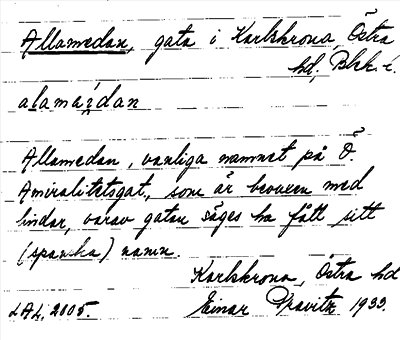 Allamedan, gata i Karlskrona Östra
hd, Blek. l.
alamạ́dan
Allamedan, vanliga namnet på Ö.
Amiralitetsgat., som är bevuxen med
lindar, varav gatan säges ha fått sitt
(spanska) namn.
Karlskrona, Östra hd
LAL, 2005. Einar Pravitz 1933.